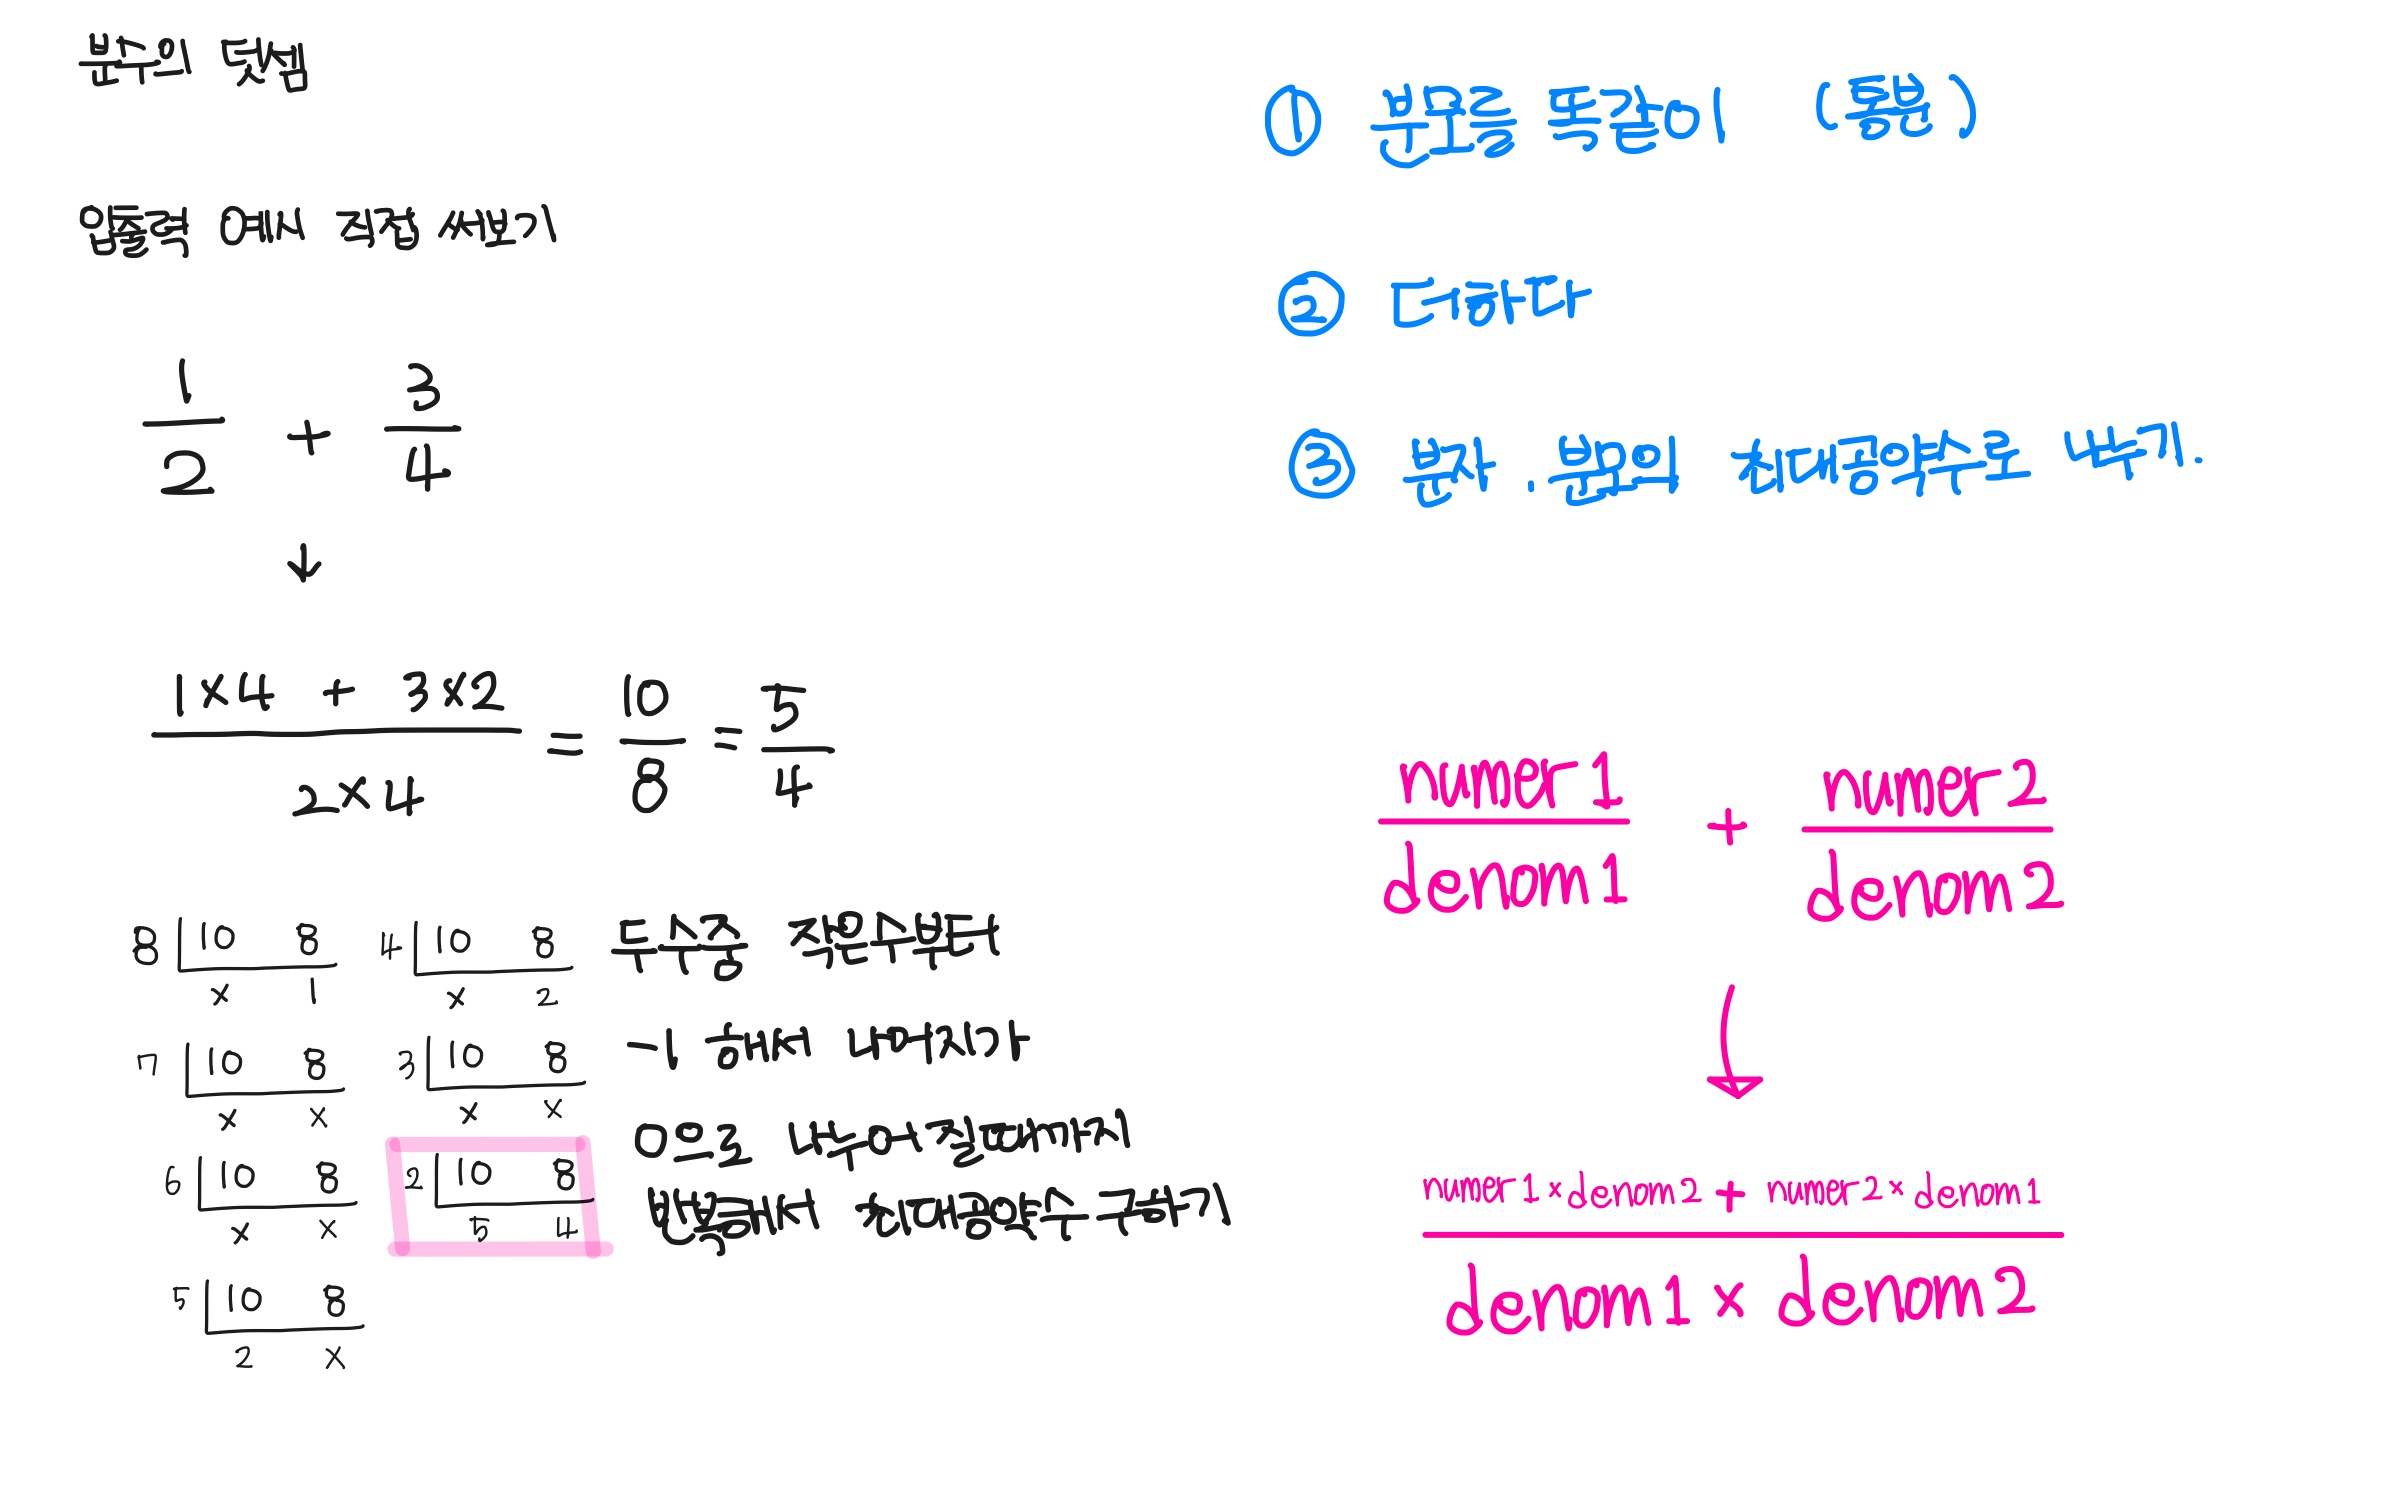 분수의 덧셈
입출력 예시 직접 써보기
1/2 + 3/4
↓
1×4 + 3×2 / 2×4 = 10/8 = 5/4
8 | 10 8
x 1
7 | 10 8
x x
6 | 10 8
x x
5 | 10 8
2 x
4 | 10 8
x 2
3 | 10 8
x x
2 | 10 8
5 4
두 수중 작은수부터
-1 해서 나머지가
0으로 나누어질때까지
반복해서 최대공약수 구하기
① 분모를 똑같이 (통분)
② 더하다
③ 분자 . 분모의 최대공약수로 나누기.
numer1/denom1 + numer2/denom2
↓
numer1×denom2 + numer2×denom1
denom1 × denom2